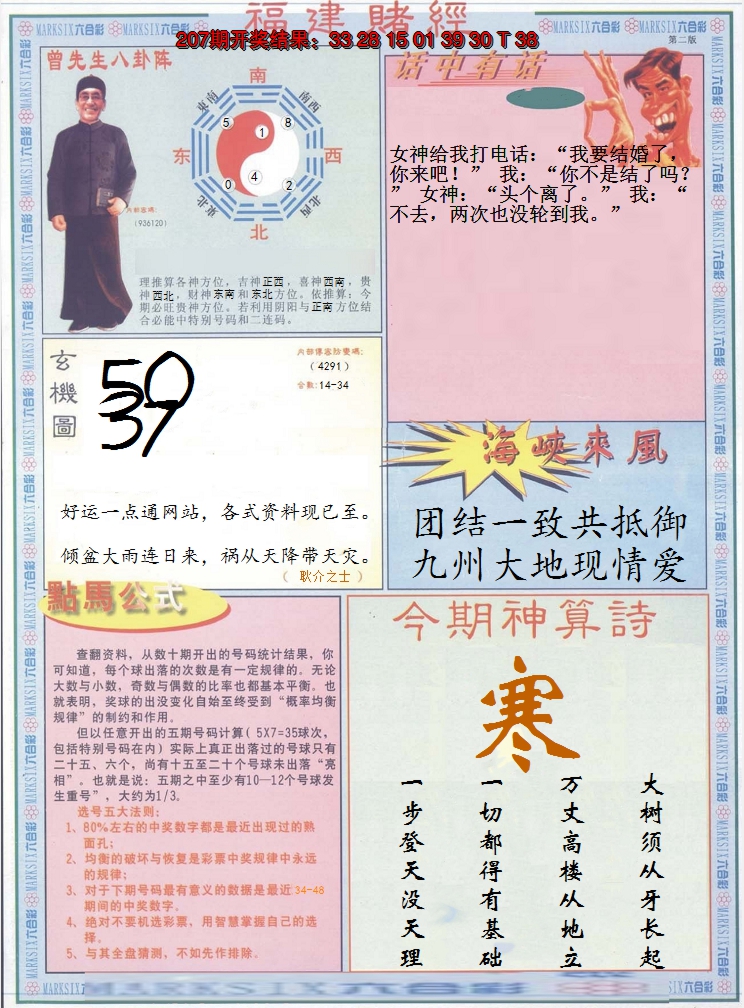 福建賭經
207期开奖结果：33 28 15 01 39 30 T 38
第二版
MARKSIX六合彩
曾先生八卦阵
南
东南
南西
5
8
1
东
西
4
0
2
东北
北西
北
内部密碼:
（936120）
理推算各神方位，吉神正西，喜神西南，贵
神西北，财神东南和东北方位。依推算：今
期必旺贵神方位。若利用阴阳与正南方位结
合必能中特别号码和二连码。
话中有话
女神给我打电话：“我要结婚了，
你来吧！” 我：“你不是结了吗？
” 女神：“头个离了。” 我：“
不去，两次也没轮到我。”
玄機圖
50
37
（4291）
合数:14-34
好运一点通网站，各式资料现已至。
倾盆大雨连日来，祸从天降带天灾。
（ 耿介之士 ）
海峽來風
团结一致共抵御
九州大地现情爱
點馬公式
查翻资料，从数十期开出的号码统计结果，你
可知道，每个球出落的次数是有一定规律的。无论
大数与小数，奇数与偶数的比率也都基本平衡。也
就表明，奖球的出没变化自始至终受到“概率均衡
规律”的制约和作用。
但以任意开出的五期号码计算( 5X7=35球次，
包括特别号码在内) 实际上真正出落过的号球只有
二十五、六个，尚有十五至二十个号球未出落“亮
相”。也就是说：五期之中至少有10—12个号球发
生重号”，大约为1/3。
选号五大法则：
1、80%左右的中奖数字都是最近出现过的熟
面孔；
2、均衡的破坏与恢复是彩票中奖规律中永远
的规律；
3、对于下期号码最有意义的数据是最近34-48
期间的中奖数字。
4、绝对不要机选彩票，用智慧掌握自己的选
择。
5、与其全盘猜测，不如先作排除。
今期神算詩
寒
大树须从牙长起
万丈高楼从地立
一切都得有基础
一步登天没天理